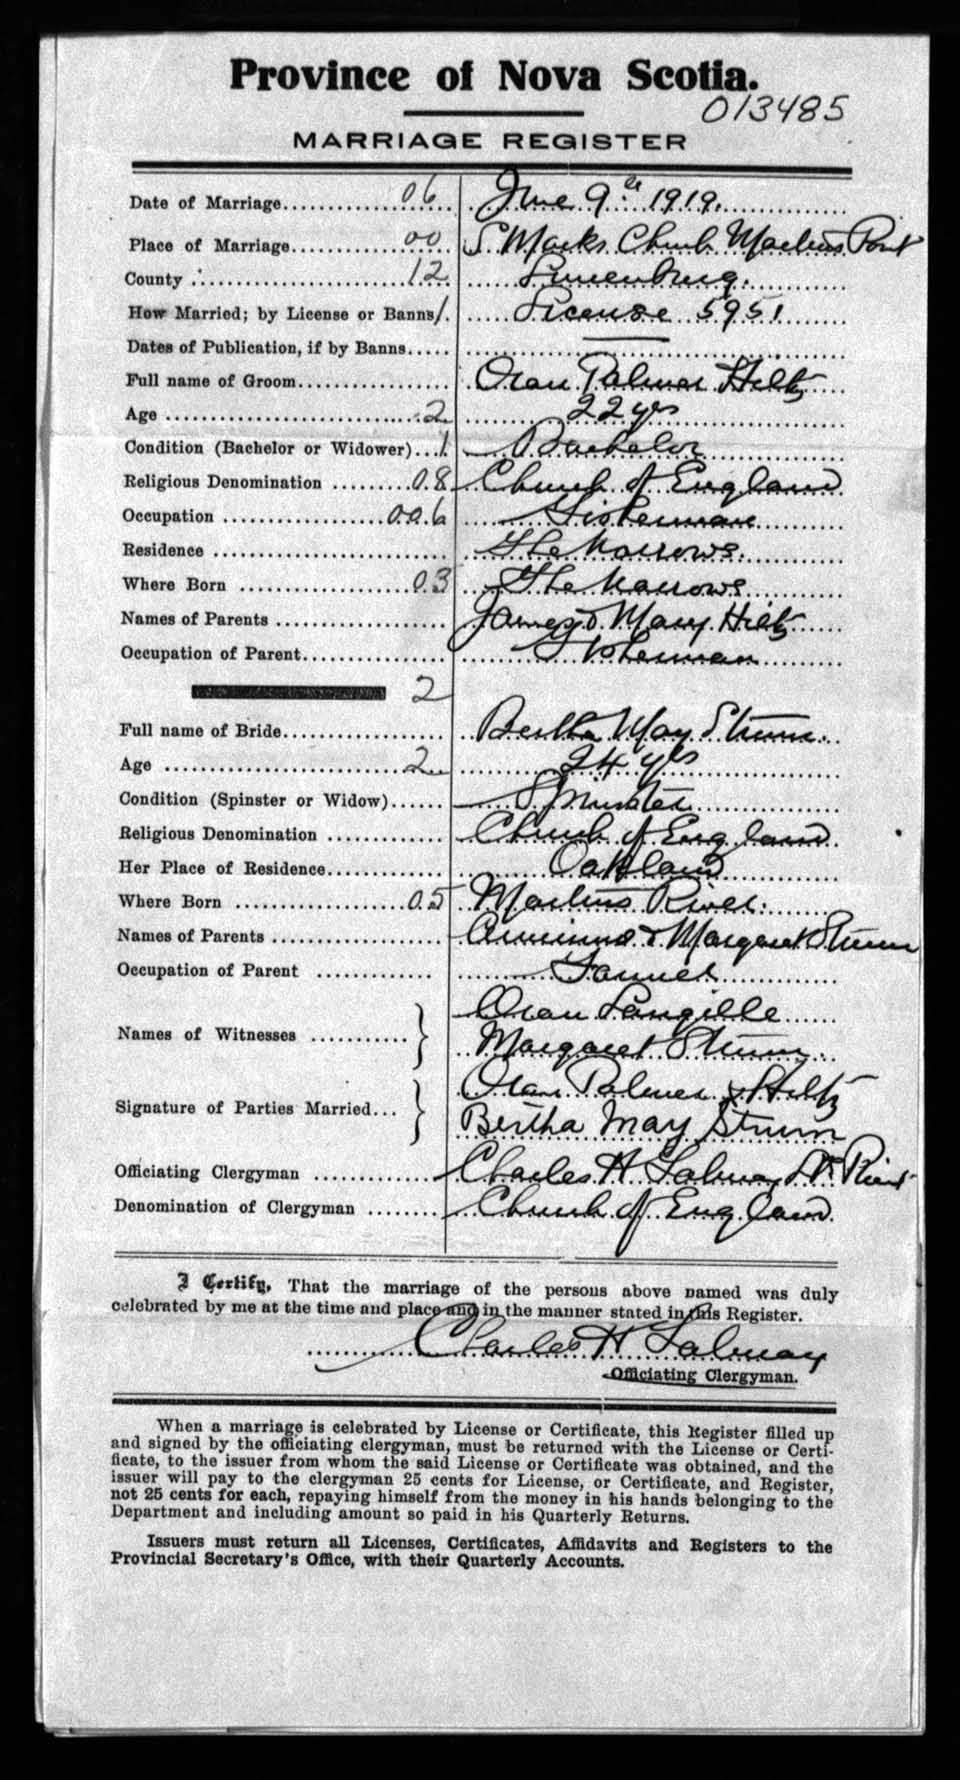 Province of Nova Scotia.
013485
MARRIAGE REGISTER
Date of Marriage 06 June 9th 1919.
Place of Marriage 00 S. Marks Church Martins Point
County 12 Lunenburg.
How Married; by License or Banns 1. License 5951
Dates of Publication, if by Banns
Full name of Groom Oran Palmer Hiltz
Age 2 22 yrs
Condition (Bachelor or Widower) 1 Bachelor
Religious Denomination 08 Church of England
Occupation 006 Fisherman
Residence The Narrows.
Where Born 03 The Narrows
Names of Parents James & Mary Hiltz
Occupation of Parent Fisherman
2
Full name of Bride Bertha May Strum.
Age 2 24 yrs
Condition (Spinster or Widow) Spinster
Religious Denomination Church of England
Her Place of Residence Oakland
Where Born 05 Martins River.
Names of Parents & Margaret Strum
Occupation of Parent Farmer
Names of Witnesses Oran Langille
Margaret Strum.
Signature of Parties Married Oran Palmer Hiltz
Bertha May Strum
Officiating Clergyman Charles H Talmay
Denomination of Clergyman Church of England.
I Certify, That the marriage of the persons above named was duly
celebrated by me at the time and place and in the manner stated in this Register.
Charles H Talmay
Officiating Clergyman.
When a marriage is celebrated by License or Certificate, this Register filled up
and signed by the officiating clergyman, must be returned with the License or Certi-
ficate, to the issuer from whom the said License or Certificate was obtained, and the
issuer will pay to the clergyman 25 cents for License, or Certificate, and Register,
not 25 cents for each, repaying himself from the money in his hands belonging to the
Department and including amount so paid in his Quarterly Returns.
Issuers must return all Licenses, Certificates, Affidavits and Registers to the
Provincial Secretary's Office, with their Quarterly Accounts.